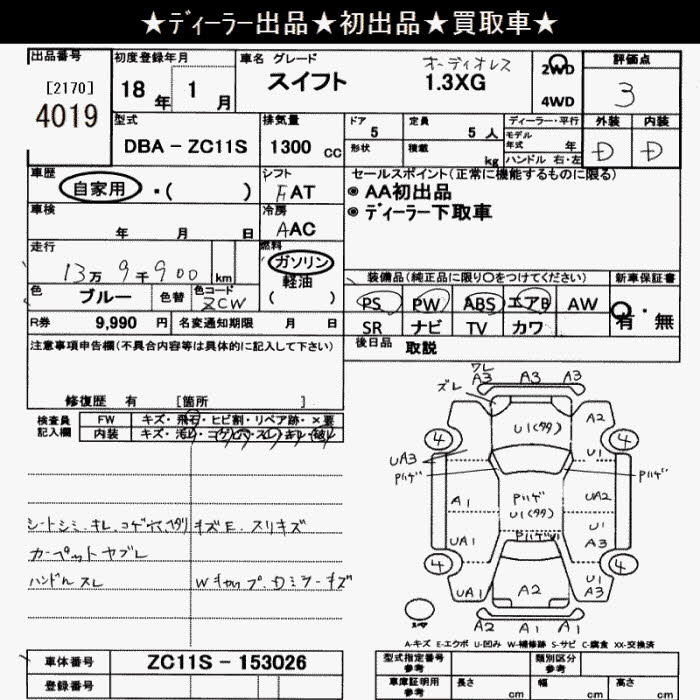 ★ディーラー出品★初出品★買取車★
出品番号 初度登録年月 車名 グレード 評価点
[2170] 18年 1月 スイフト オーディオレス 1.3XG 2WD 3
4019 4WD
型式 排気量 ドア 定員 ディーラー・平行 外装 内装
DBA-ZC11S 1300 cc 5 5人 モデル年式 年 D D
形状 積載 kg ハンドル 右・左
車歴 シフト セールスポイント(正常に機能するものに限る)
自家用・( ) FAT ◉ AA初出品
車検 冷房 ◉ ディーラー下取車
年 月 日 AAC
走行 燃料
13万9千900 km ガソリン 装備品(純正品に限り○をつけてください) 新車保証書
軽油
色 ブルー 色替 色コード ZCW ( ) PS PW ABS エアB AW 有・無
R券 9,990円 名変通知期限 月 日 SR ナビ TV カワ
注意事項申告欄(不具合内容等は具体的に記入して下さい) 後日品 取説
修復歴 有 [箇所 ]
検査員記入欄 FW キズ・飛石・ヒビ割・リペア跡・×要
内装 キズ・汚れ・コゲ・穴・スレ・キレ・破れ
シートシミ、キレ、コゲ穴、ヘタリ キズE.スリキズ
カーペットヤブレ
ハンドルスレ Wキャップ.Dミラーキズ
ワレ
A3 A3 A3
ズレ
U1(タタ) A2
4 4
UA3 U1
Pハゲ Pハゲ
Pハゲ
A1 U1(タタ) UA2
U1
UA1 Pハゲ A3
4 4
U1
UA1 A2 A3
A2 A1 A1
A-キズ E-エクボ U-凹み W-補修跡 S-サビ C-腐食 XX-交換済
車体番号 ZC11S-153026 型式指定番号 参考 類別区分 参考
登録番号 車庫証明用 参考 長さ cm 幅 cm 高さ cm